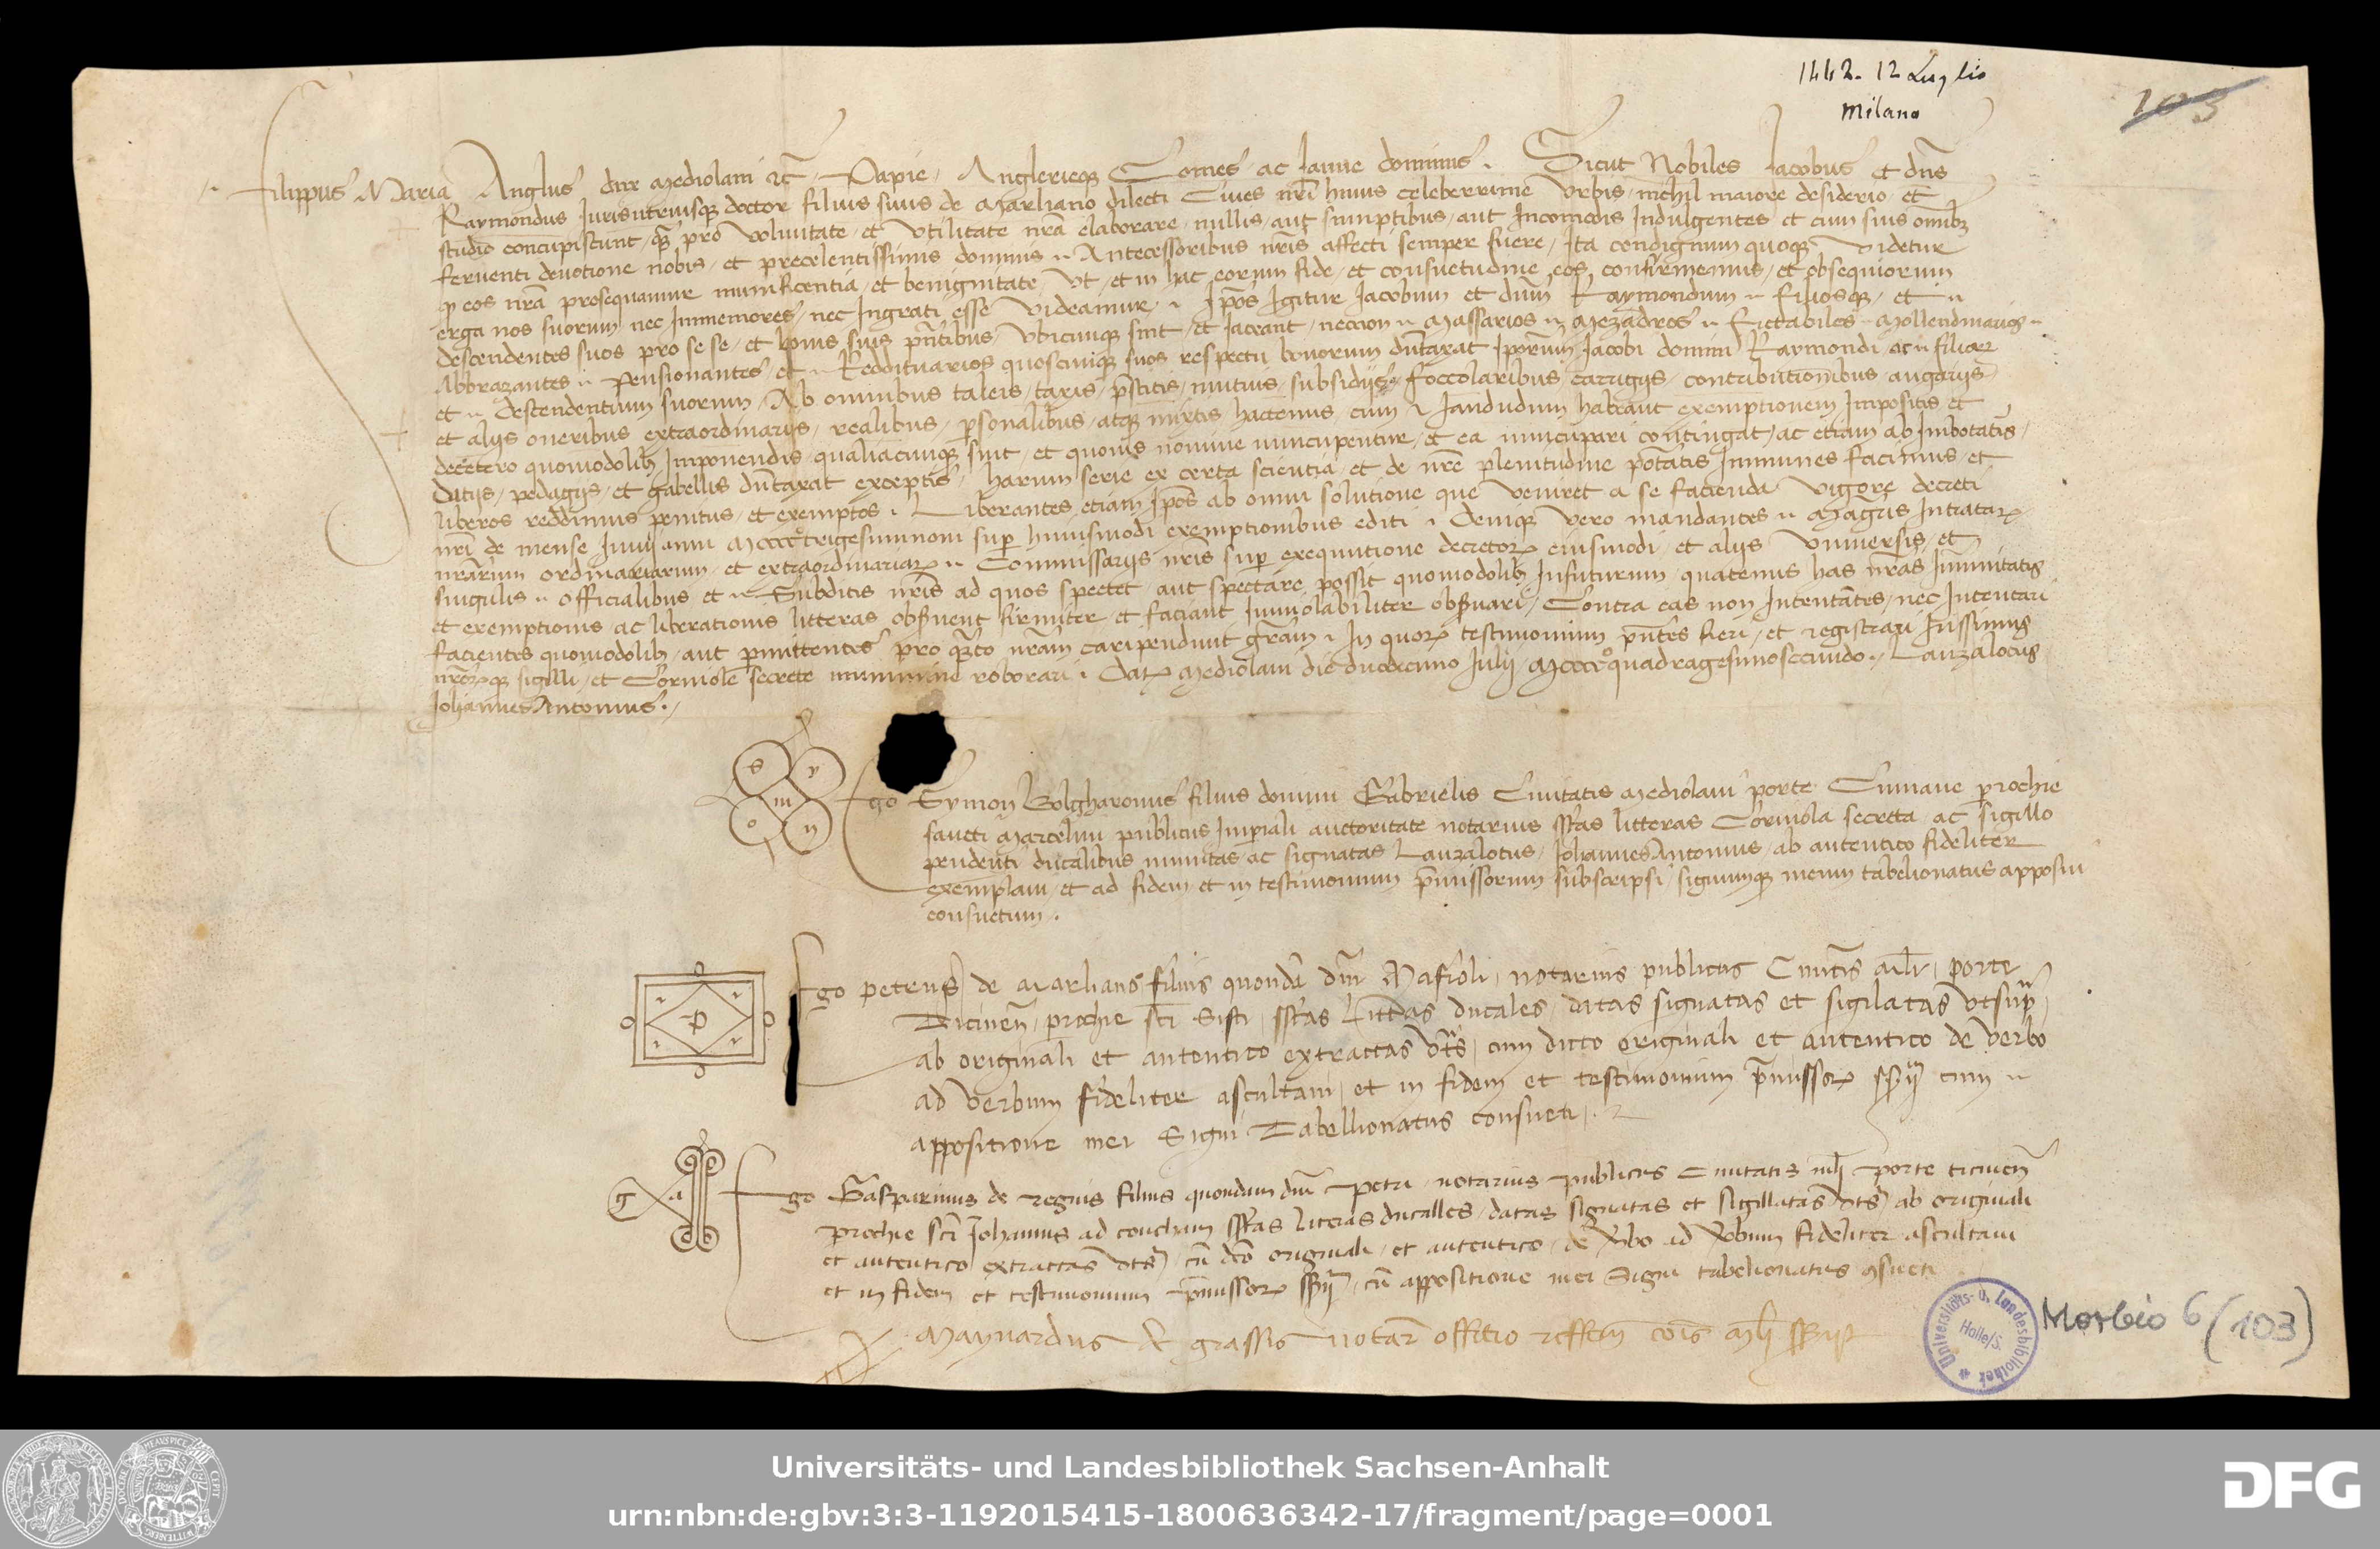 1442. 12 Luglio
Milano
103
Filippus Maria Anglus dux Mediolani etc̄. Papie, Anglerieqꝫ Comes ac Janue dominus. Sicut Nobiles Jacobus et dn̄s
Raymondus Jurisutriusqꝫ doctor filius suus de Marliano dilecti Cives nr̄i huius celeberrime Urbis, nichil maiore desiderio, et
studio concupiscunt, qꝫ pro voluntate, et utilitate nr̄a elaborare, nullis, aut sumptibus, aut Incomodis Indulgentes et cum suis omibꝫ
ferventi devotione nobis, et precelentissimis dominis Antecessoribus nr̄is affecti semper fuere, Ita condignum quoqꝫ videtur
ꝙ eos nr̄a prosequamur munificentia, et benignitate, Ut, et in hac eorum fide, et consuetudine eos confirmemus, et obsequiorum
erga nos suorum nec Immemores, nec Ingrati esse videamur, Ip̄os Igitur Jacobum et dn̄um Raymondum filiosqꝫ, et
descendentes suos pro se se, et bonis suis pn̄tibus, Ubicunqꝫ sint, et Jaceant, necnon Massarios Mezadros fictabiles Mollendinarios
Abbrazantes Pensionantes, et Reddituarios quoscunqꝫ suos respectu bonorum dūtaxat Ip̄orum Jacobi domini Raymondi, ac filiorꝫ
et descendentium suorum, Ab omnibus taleis, taxis, p̄stitis, mutuis, subsidijs, foccolaribus, carrigijs, contributionibus, angarijs
et alijs oneribus extraordinarijs, realibus, ꝑsonalibus, atqꝫ mixtis hactenus, cum Jamdudum habeant exemptionem Impositis, et
decetero quomodolibꝫ Imponendis, qualiacunqꝫ sint, et quovis nomine nuncupentur, et ea nuncupari contingat, ac etiam ab Imbotatis,
Datijs, pedagijs, et gabellis dūtaxat exceptis, harum serie ex certa scientia, et de nr̄e plenitudine pot̄atis Immunes facimus, et
liberos reddimus penitus, et exemptos. Liberantes etiam Ip̄os ab omni solutione que veniret a se facienda vigore decreti
nr̄i de mense Junij anni Mcccc°trigesiminoni suꝑ huiusmodi exemptionibus editi. Deniqꝫ vero mandantes Magr̄is Intratarꝫ
nr̄arum ordinariarum, et extraordinariarꝫ Commissarijs nr̄is suꝑ exequutione decretorꝫ eiusmodi, et alijs Universis, et
singulis officialibus et Subditis nr̄is ad quos spectet, aut spectare possit quomodolibꝫ Infuturum, quatenus has nr̄as Immunitatis
et exemptionis ac liberationis litteras observent firmiter, et faciant Inviolabiliter observari, Contra eas non Intentantes, nec Intentari
facientes quomodolibꝫ, aut ꝑmittentes pro qꝫto nr̄am caripendunt gr̄am. In quorꝫ testimonium pn̄tes fieri, et registrari Jussimus
nr̄orꝫqꝫ sigilli, et Cornole secrete munimine roborari. Datꝫ Mediolani die duodecimo Julij Mcccc°quadragesimosecundo. Lanzalotus
JohannesAntonius.
S y m o n
Ego Symon Bolgharonus filius domini Gabrielis Civitatis Mediolani porte Cumane ꝑrochie
sancti Marcelini publicus Imperiali auctoritate notarius ss̄tas litteras Corniola secreta ac sigillo
pendenti ducalibus munitas ac signatas Lanzalotus, JohannesAntonius, ab autentico fideliter
exemplavi, et ad fidem et in testimonium p̄missorum subscripsi, signumqꝫ meum tabelionatus apposui
consuetum.
P
Ego petrus de Marliano filius quondā dn̄i Mafioli, notarius publicus Civitatis Ml̄i, porte
Ticinen̄, ꝑrochie scī Sisti, ss̄tas Litteras ducales, datas signatas et sigilatas utsupra
ab originali et autentico extractas ut s̄, cum dicto originali et autentico de verbo
ad verbum fideliter ascultavi, et in fidem et testimonium p̄missorꝫ ss̄ cum
appositione mei Signi Tabellionatus consueti.
G a
Ego Gasparinus de regnis filius quondam dn̄i Petri, notarius publicus Civitatis ml̄i porte ticinen̄
ꝑrochie scī Johannis ad concham ss̄tas literas ducalles, datas signatas et sigillatas ut s̄, ab originali
et autentico extractas ut s̄, cū dc̄o originali, et autentico, de v̄bo ad v̄bum fideliter ascultavi
et in fidem et testimonium p̄missorꝫ ss̄, cū appositione mei Signi tabelionatus ꝯsueti
Maynardus de grassis notar̄ offitio cōis ml̄i
Universitäts- u. Landesbibliothek
Halle/S.
Morbio 6 (103)
Universitäts- und Landesbibliothek Sachsen-Anhalt
urn:nbn:de:gbv:3:3-1192015415-1800636342-17/fragment/page=0001
DFG